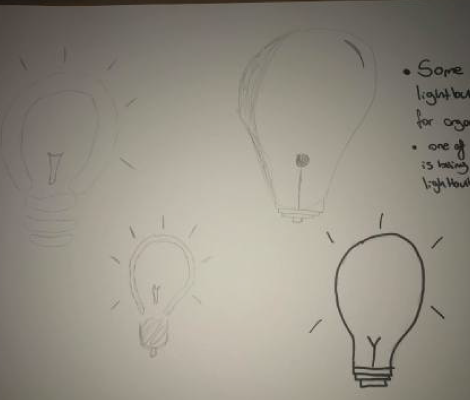 • Some
lightbu
for orga
• one of
is being
lightbul